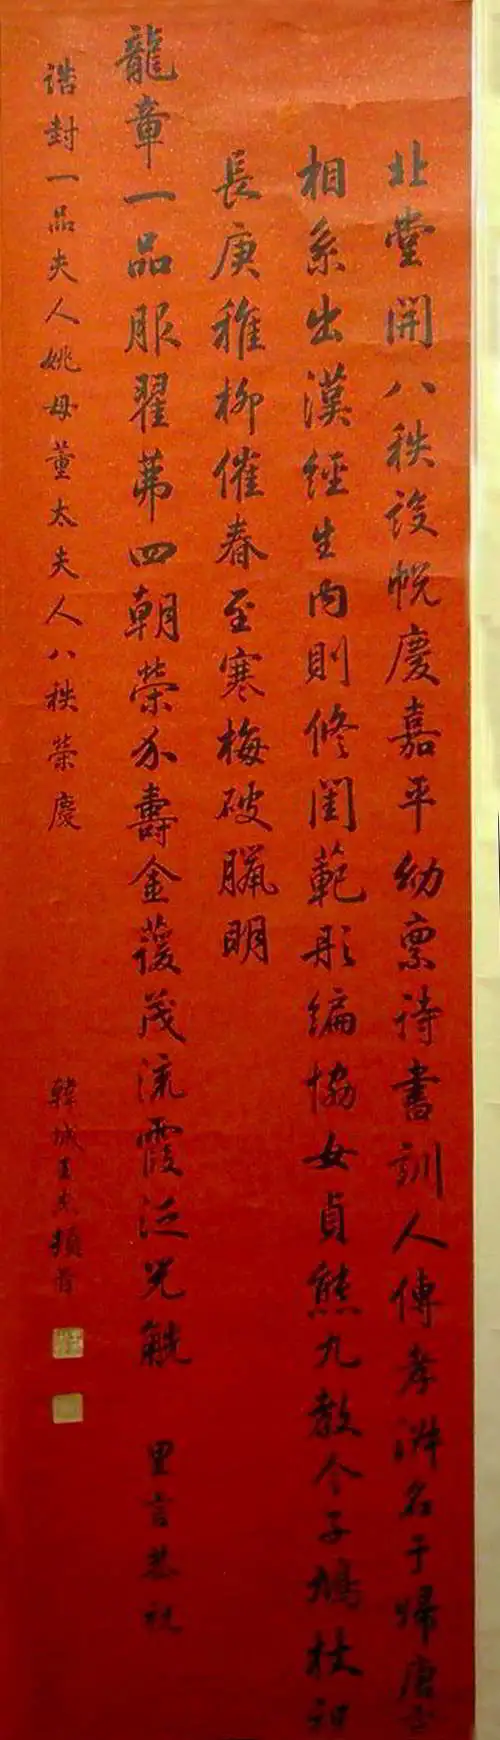 北堂開八秩設帨慶嘉平幼稟詩書訓人傳孝淑名于歸唐宰
相系出漢經生內則修閨範彤編協女貞熊丸教令子鳩杖祝
長庚稚柳催春至寒梅破臘明
龍章一品服翟茀四朝榮介壽金萱茂流霞泛兕觥
里言恭祝
誥封一品夫人姚母董太夫人八秩榮慶
韓城王杰頓首